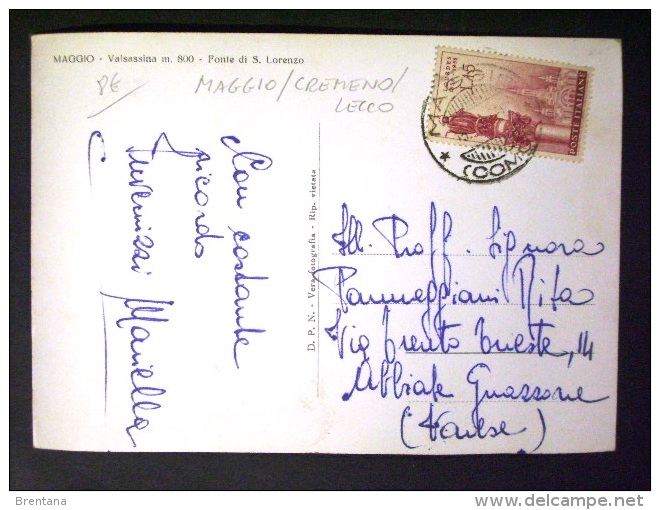 MAGGIO - Valsassina m. 800 - Fonte di S. Lorenzo
8€
MAGGIO/CREMENO/
LECCO
Con costante
ricordo
Invernizzi Mariella
D. P. N. - Vera fotografia - Rip. vietata
L. 15
POSTE ITALIANE
MA
(COMO)
Ill. Proff. Signora
Parmeggiani Rita
Via Trento Trieste, 14
Abbiate Guazzone
(Varese)
Brentana
delcampe.net